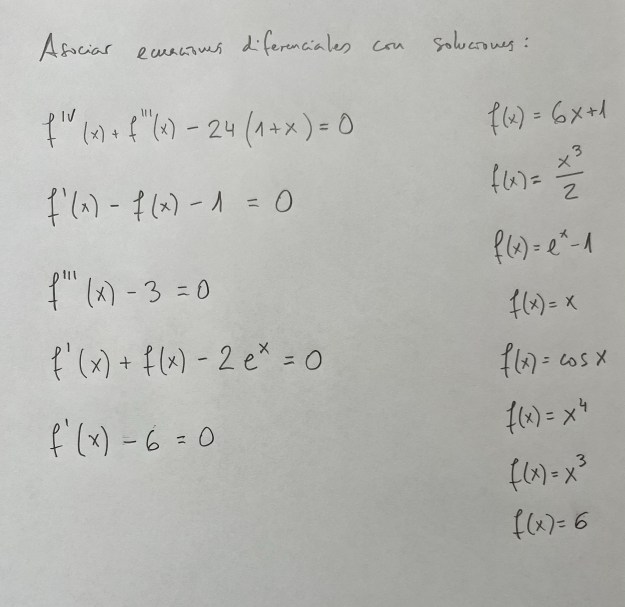 Asociar ecuaciones diferenciales con soluciones:
f^IV (x) + f'''(x) - 24 (1+x) = 0
f'(x) - f(x) - 1 = 0
f''' (x) - 3 = 0
f'(x) + f(x) - 2 e^x = 0
f'(x) - 6 = 0
f(x) = 6x+1
f(x) = x^3/2
f(x) = e^x - 1
f(x) = x
f(x) = cos x
f(x) = x^4
f(x) = x^3
f(x) = 6